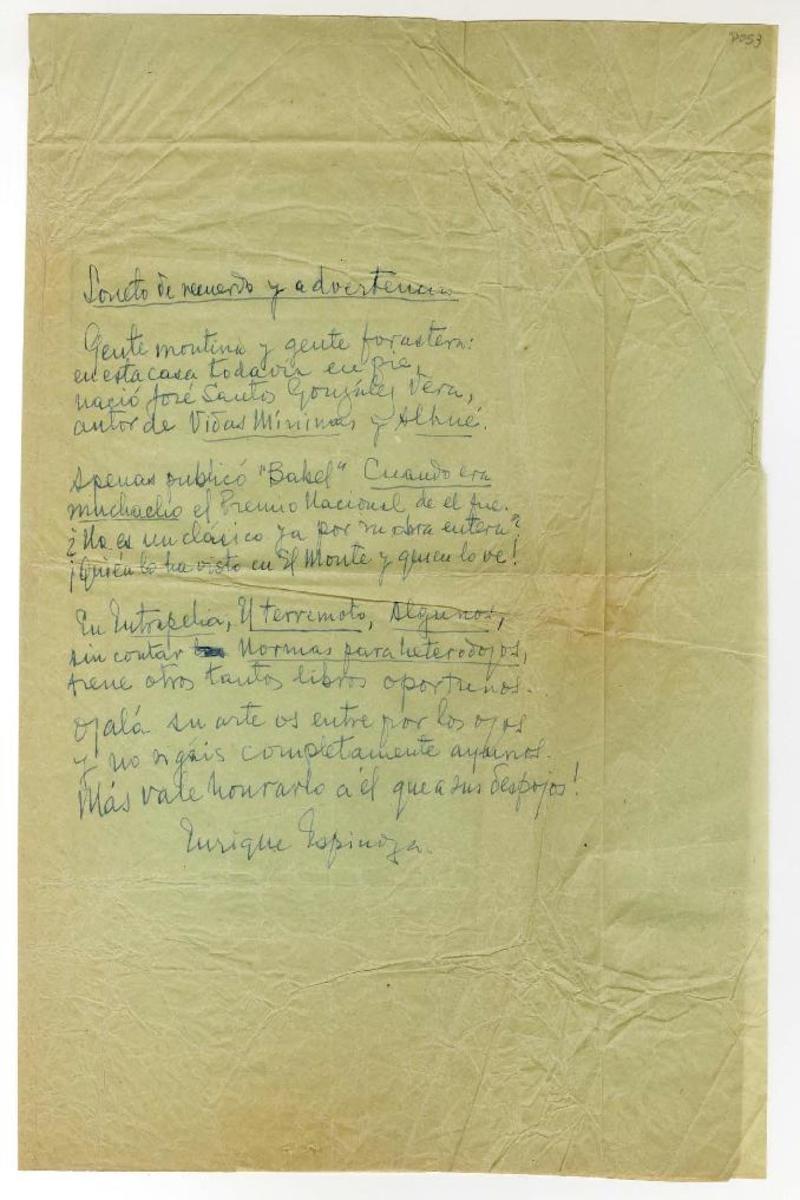 P053
Soneto de recuerdo y advertencia
Gente montina y gente forastera:
en esta casa todavía en pie,
nació José Santos González Vera,
autor de Vidas Mínimas y Alhué.
Apenas publicó "Babel" Cuando era
muchacho el Premio Nacional de el fue.
¿No es un clásico ya por su obra entera?
¡Quién lo ha visto en El Monte y quien lo ve!
En Eutrapelia, El terremoto, Algunos,
sin contar Normas para heterodojos,
tiene otros tantos libros oportunos.
Ojalá su arte os entre por los ojos
y no sigáis completamente ayunos.
Más vale honrarlo a él que a sus despojos!
Enrique Espinoza.